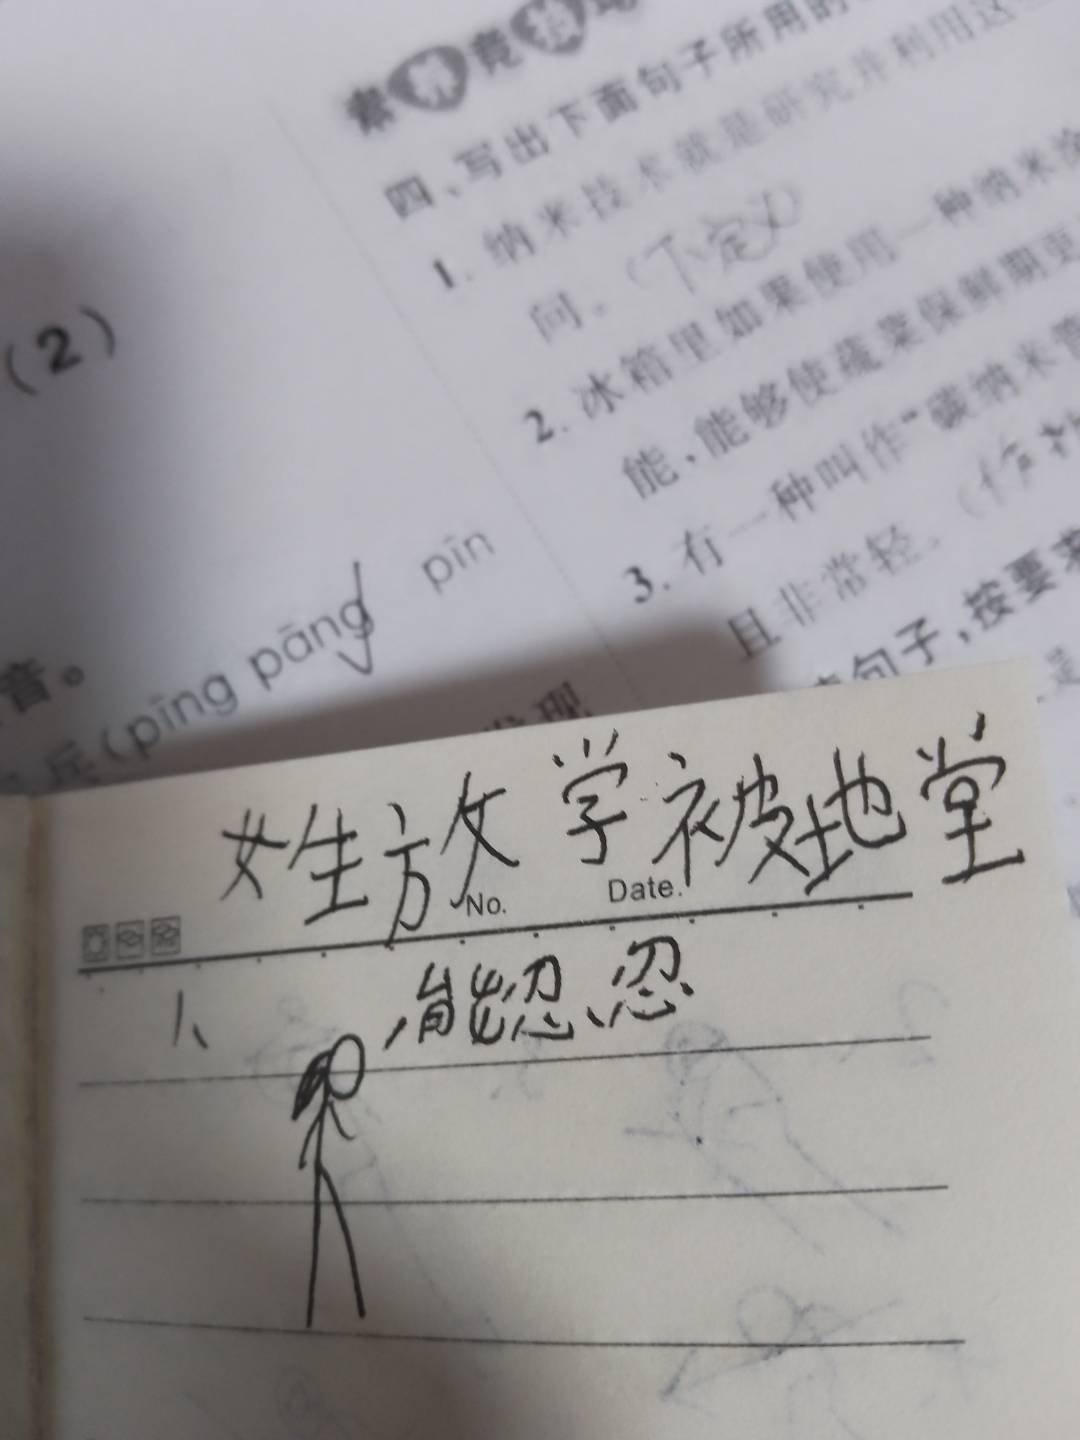 素养竞技场
四、写出下面句子所用的
1. 纳米技术就是研究并利用这
问。(下定义)
2. 冰箱里如果使用一种纳米涂
能,能够使蔬菜保鲜期更
3. 有一种叫作“碳纳米管
且非常轻。(作
句子,按要求
是
(2)
音。
乒(pīng pāng pīn
发现
姓放学被地堂
No. Date.
八 能忍忍